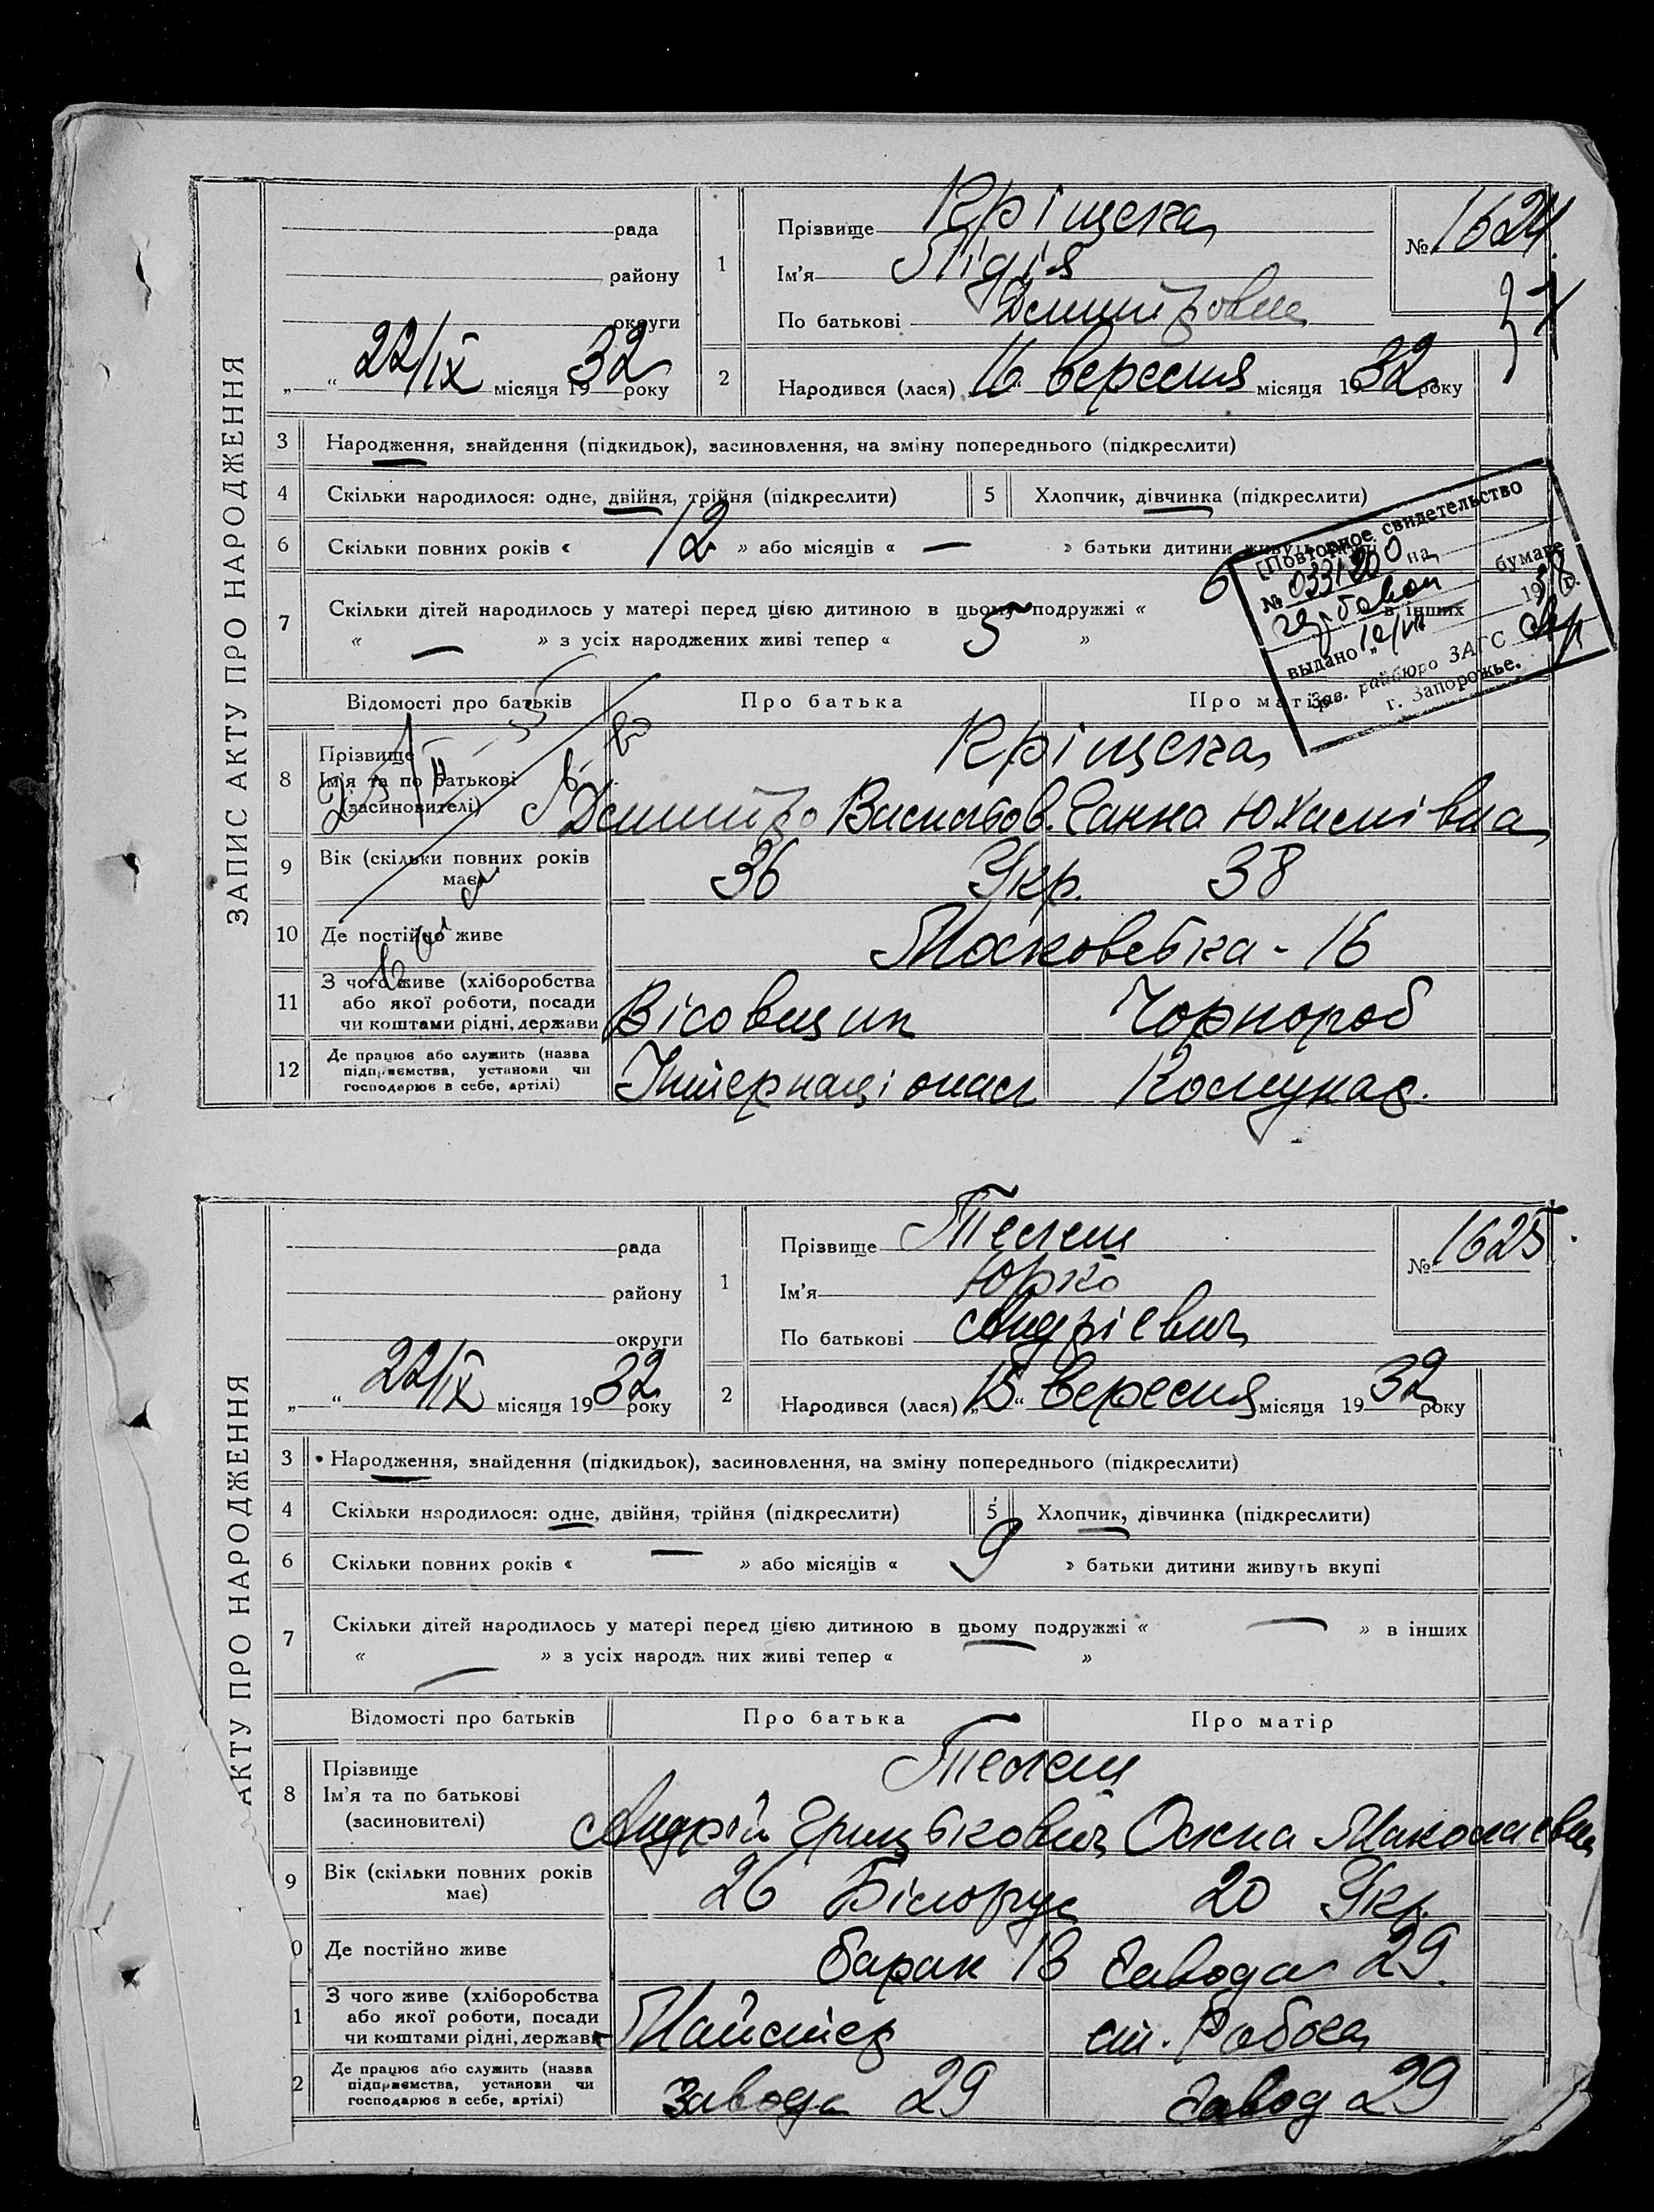 ЗАПИС АКТУ ПРО НАРОДЖЕННЯ
рада
району
округи
„ “ 22/IX місяця 1932 року
1
Прізвище Кріщека
Ім'я Лідія
По батькові Дмитровна
№ 1624
2
Народився (лася) 16 вересня місяця 1932 року
3 Народження, знайдення (підкидьок), засиновлення, на зміну попереднього (підкреслити)
4 Скільки народилося: одне, двійня, трійня (підкреслити)
5 Хлопчик, дівчинка (підкреслити)
6 Скільки повних років « 12 » або місяців « — » батьки дитини живуть
7 Скільки дітей народилось у матері перед цією дитиною в цьому подружжі « 
в інших
« — » з усіх народжених живі тепер « 5 »
[Повторное свидетельство
№ 033120 на
бумаге
выдано „10/VII 1958 г.
Зав. райбюро ЗАГС
г. Запорожье.
Відомості про батьків
Про батька
Про матір
8 Прізвище
Ім'я та по батькові
(засиновителі)
Кріщека
Дмитро Васильов. Ганна Юхимівна
9 Вік (скільки повних років
має)
36 Укр. 38
10 Де постійно живе
Московська - 16
11 З чого живе (хліборобства
або якої роботи, посади
чи коштами рідні, держави
Вісовщик
Чорнороб
12 Де працює або служить (назва
підприємства, установи чи
господарює в себе, артілі)
Інтернаціонал
Комунар.
АКТУ ПРО НАРОДЖЕННЯ
рада
району
округи
„ “ 22/IX місяця 1932 року
1
Прізвище Телеш
Ім'я Юрко
По батькові Андрієвич
№ 1625
2
Народився (лася) „15“ вересня місяця 1932 року
3 Народження, знайдення (підкидьок), засиновлення, на зміну попереднього (підкреслити)
4 Скільки народилося: одне, двійня, трійня (підкреслити)
5 Хлопчик, дівчинка (підкреслити)
6 Скільки повних років « — » або місяців « 9 » батьки дитини живуть вкупі
7 Скільки дітей народилось у матері перед цією дитиною в цьому подружжі « — » в інших
« — » з усіх народж них живі тепер « »
Відомості про батьків
Про батька
Про матір
8 Прізвище
Ім'я та по батькові
(засиновителі)
Телеш
Андрій Грицькович Олена Миколаєвна
9 Вік (скільки повних років
має)
26 Білорус 20 Укр.
0 Де постійно живе
барак 13 Завода 29.
1 З чого живе (хліборобства
або якої роботи, посади
чи коштами рідні, держави
Майстер
2 Де працює або служить (назва
підприємства, установи чи
господарює в себе, артілі)
Завода 29
Завод 29